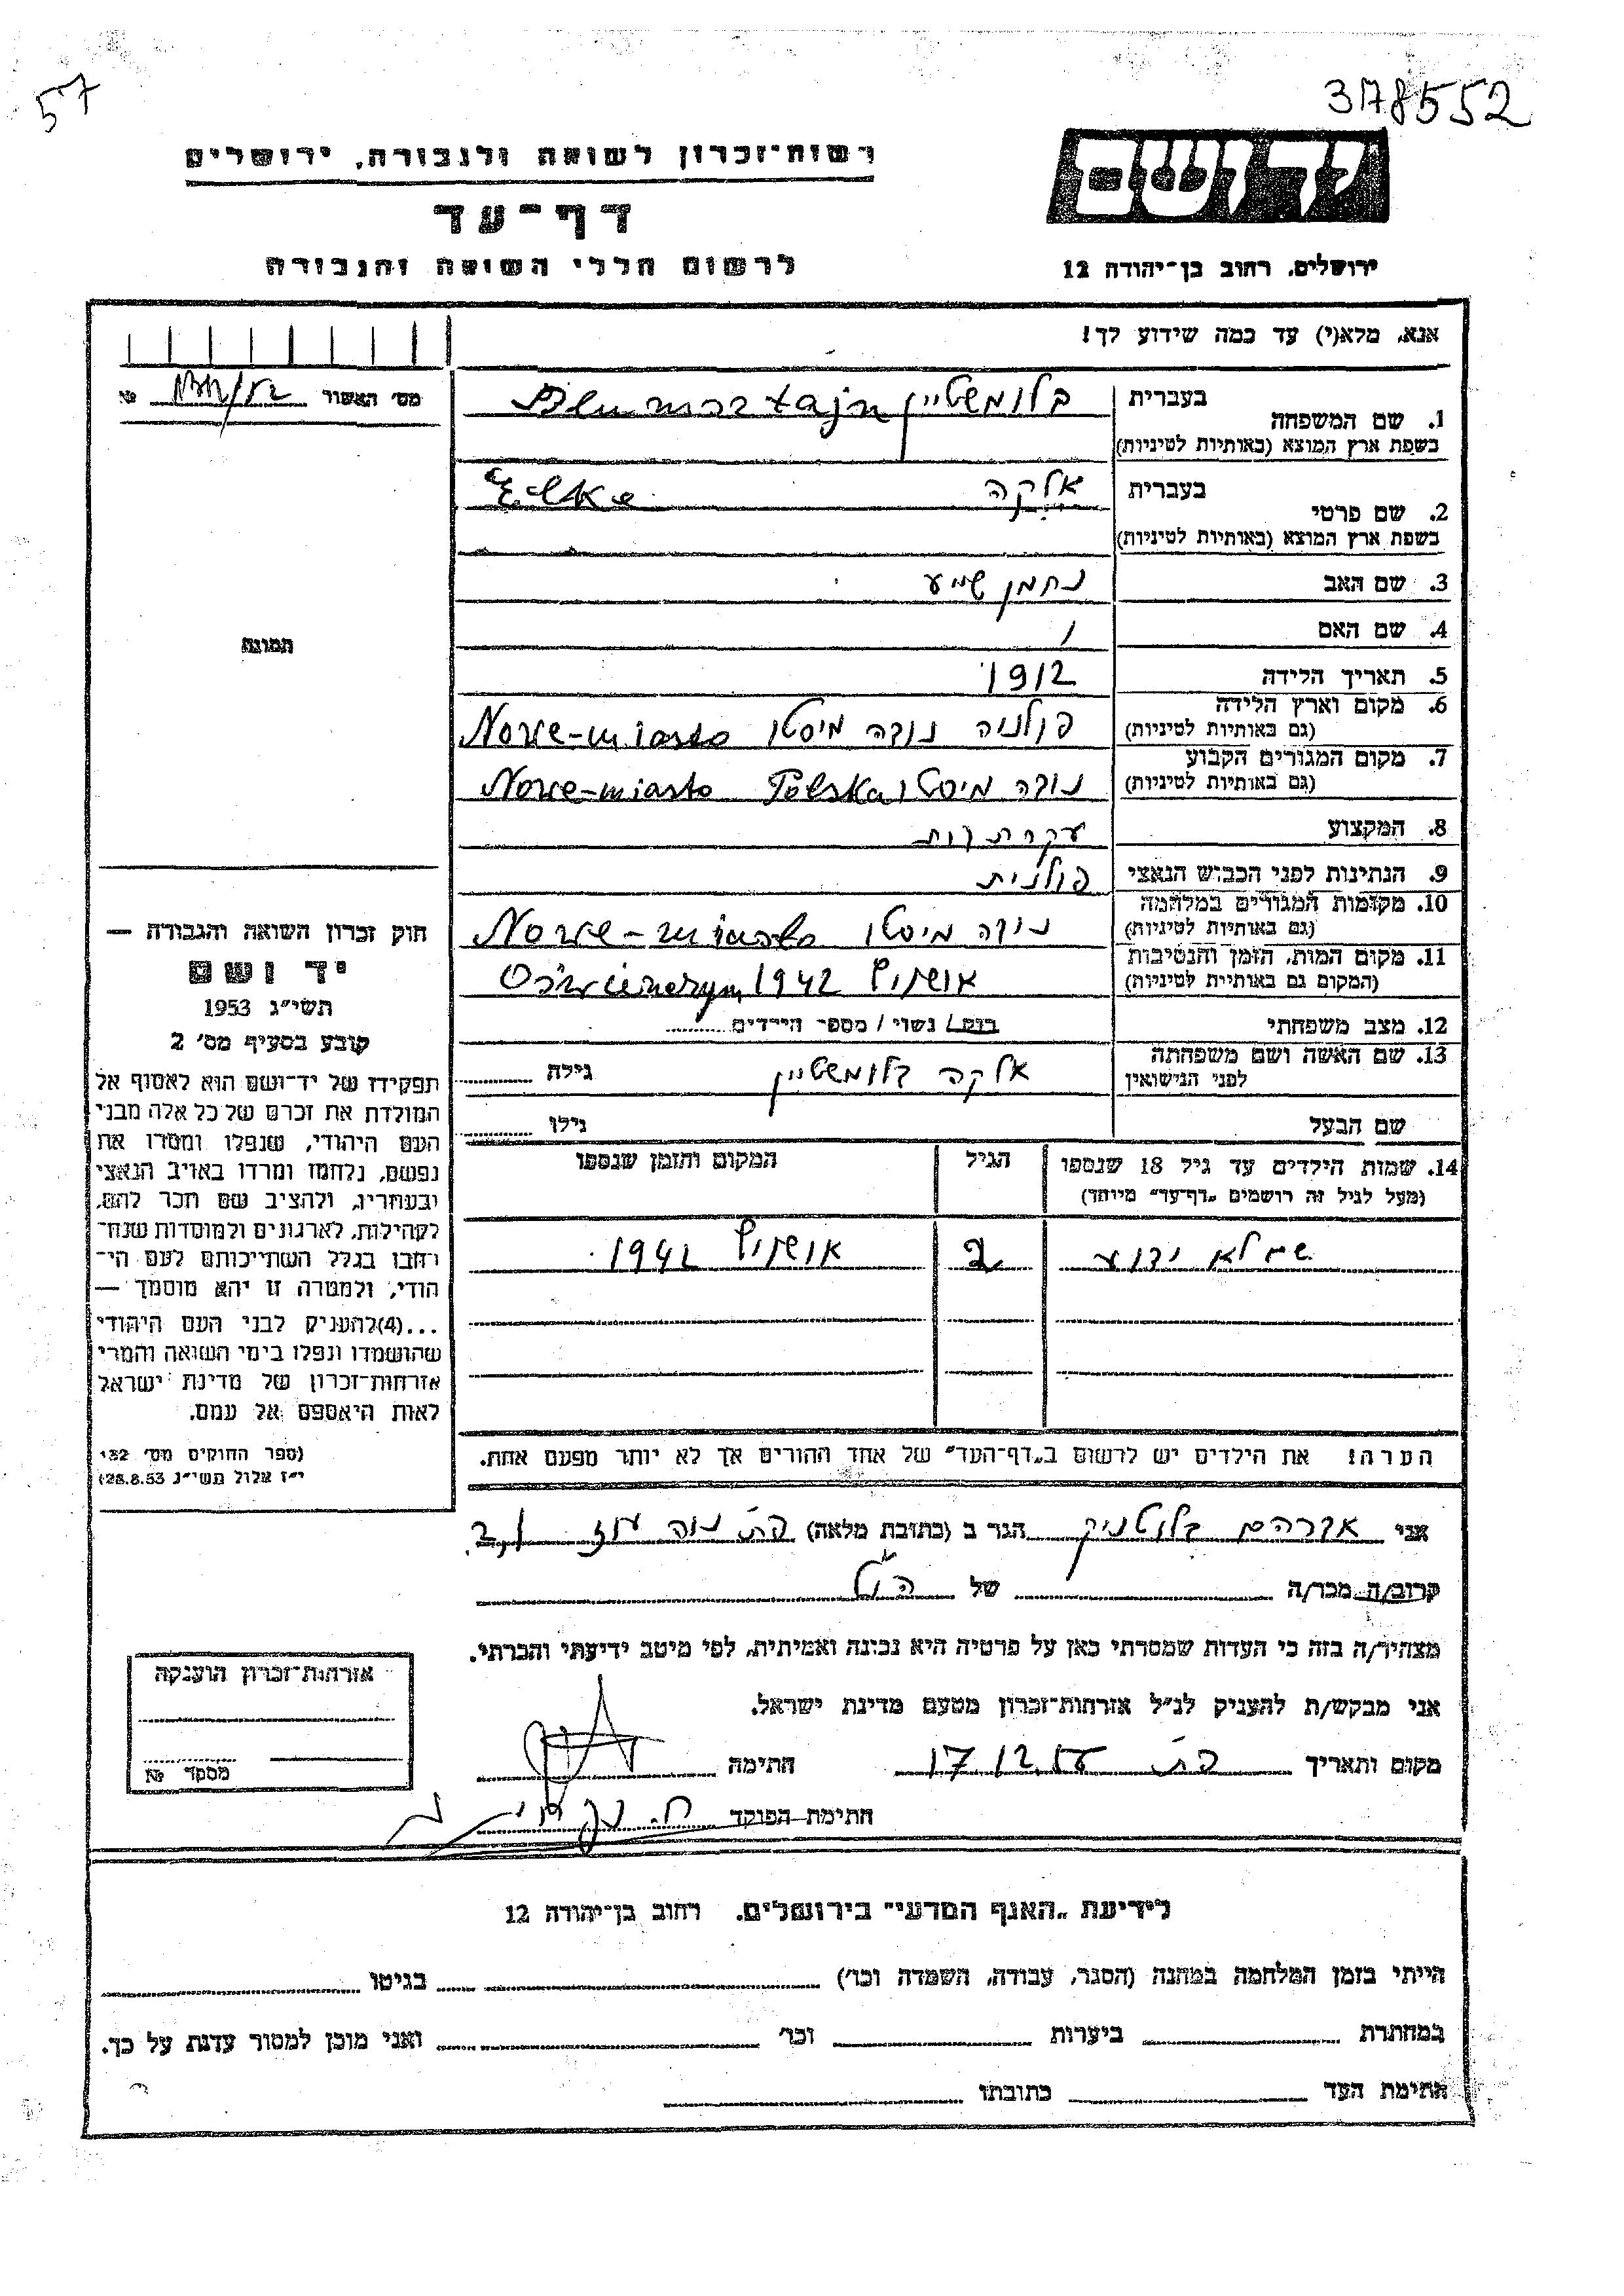 57
378552
רשות־זכרון לשואה ולגבורה, ירושלים
יד ושם
דף־עד
לרשום חללי השואה והגבורה
ירושלים, רחוב בן־יהודה 12
אנא, מלא(י) עד כמה שידוע לך!
מס׳ האשור №
1. שם המשפחה
בעברית בלומשטיין Blumsztajn
בשפת ארץ המוצא (באותיות לטיניות)
2. שם פרטי
בעברית אלקה
בשפת ארץ המוצא (באותיות לטיניות)
3. שם האב נחמן שייע
4. שם האם /
5. תאריך הלידה 1912
6. מקום וארץ הלידה פולניה נובה מיסטו Nowe-miasto
(גם באותיות לטיניות)
7. מקום המגורים הקבוע נובה מיסטו Nowe-miasto Polska
(גם באותיות לטיניות)
8. המקצוע עקרת בית
9. הנתינות לפני הכבוש הנאצי פולנית
10. מקומות המגורים במלחמה נובה מיסטו Nowe-miasto
(גם באותיות לטיניות)
11. מקום המות, הזמן והנסיבות אושויץ 1942
(המקום גם באותיות לטיניות)
12. מצב משפחתי רווק / נשוי / מספר הילדים
13. שם האשה ושם משפחתה אלקה בלומשטיין גילה
לפני הנישואין
שם הבעל גילו
14. שמות הילדים עד גיל 18 שנספו הגיל המקום והזמן שנספו
(מעל לגיל זה רושמים „דף־עד” מיוחד)
שם לא ידוע 2 אושויץ 1942
הערה! את הילדים יש לרשום ב„דף־העד” של אחד ההורים אך לא יותר מפעם אחת.
תמונה
חוק זכרון השואה והגבורה —
יד ושם
תשי״ג 1953
קובע בסעיף מס׳ 2
תפקידו של יד־ושם הוא לאסוף אל
המולדת את זכרם של כל אלה מבני
העם היהודי, שנפלו ומסרו את
נפשם, נלחמו ומרדו באויב הנאצי
ובעוזריו, ולהציב שם וזכר להם,
לקהילות, לארגונים ולמוסדות שנח־
רבו בגלל השתייכותם לעם הי־
הודי, ולמטרה זו יהא מוסמך —
...(4)להעניק לבני העם היהודי
שהושמדו ונפלו בימי השואה והמרי
אזרחות־זכרון של מדינת ישראל
לאות היאספם אל עמם.
(ספר החוקים מס׳ 132
י״ז אלול תשי״ג 28.8.53)
אני אברהם בלוטניק הגר ב (כתובת מלאה) פ״ת נוה עוז
קרוב/ה מכר/ה של
מצהיר/ה בזה כי העדות שמסרתי כאן על פרטיה היא נכונה ואמיתית, לפי מיטב ידיעתי והכרתי.
אני מבקש/ת להעניק לנ״ל אזרחות־זכרון מטעם מדינת ישראל.
מקום ותאריך פ״ת 17.12 חתימה
חתימת הפוקד
אזרחות־זכרון הוענקה
מסקד №
לידיעת „האגף המדעי” בירושלים, רחוב בן־יהודה 12
הייתי בזמן המלחמה במחנה (הסגר, עבודה, השמדה וכו׳) בגיטו
במחתרת ביערות וכו׳ ואני מוכן למסור עדות על כך.
חתימת העד כתובתו